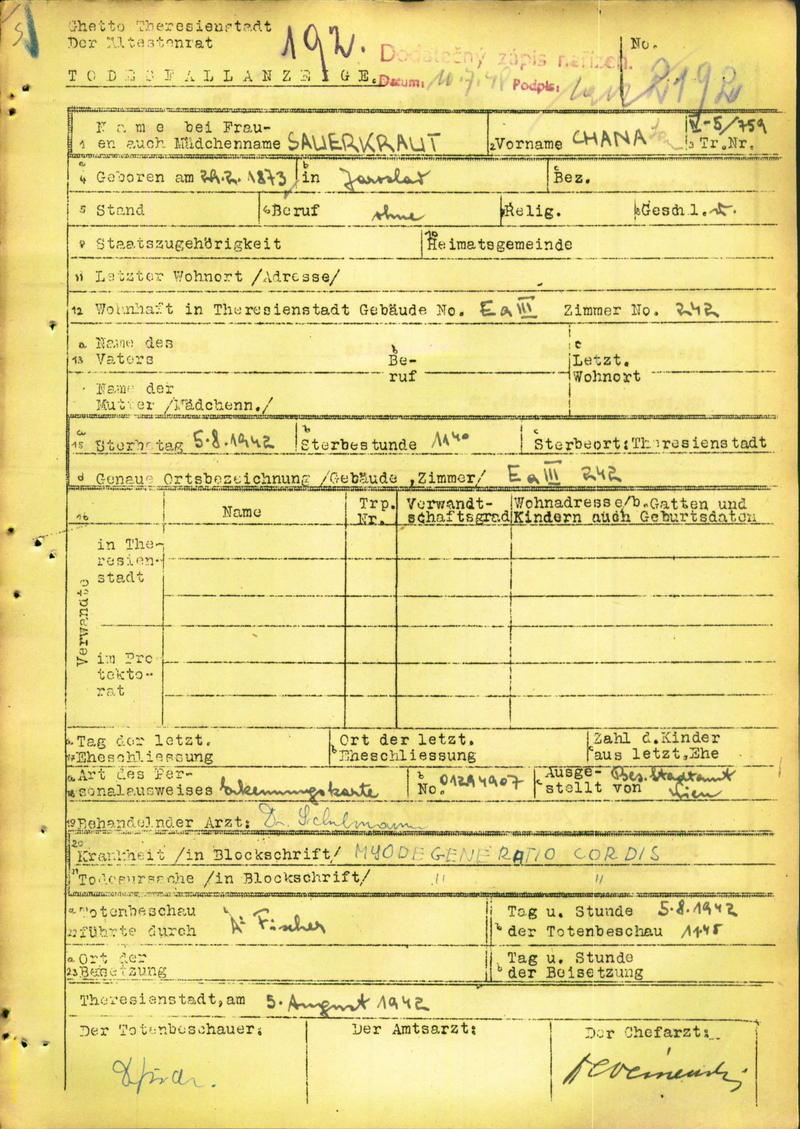 Ghetto Theresienstadt
Der Ältestenrat
192.
Dodatečný zápis nařízen.
No.
TODESFALLANZEIGE.
Datum: Podpis:
2192
Name bei Frau-
1 en auch Mädchenname SAUERKRAUT
2 Vorname CHANA
IV-5/759
3 Tr.Nr.
a
4 Geboren am 1873
b in Jaroslav
c Bez.
5 Stand
6 Beruf ohne
7 Relig.
8 Geschl.
9 Staatszugehörigkeit
10 Heimatsgemeinde
11 Letzter Wohnort /Adresse/
12 Wohnhaft in Theresienstadt Gebäude No. E a III Zimmer No. 242
a Name des
13 Vaters
b Be-
ruf
c Letzt.
Wohnort
Name der
Mutter /Mädchenn./
a
15 Sterbetag 5.8.1942
b Sterbestunde 11 40
c Sterbeort: Theresienstadt
d Genaue Ortsbezeichnung /Gebäude, Zimmer/ E a III 242
16 Name
Trp.
Nr.
Verwandt-
schaftsgrad
Wohnadresse/b.Gatten und
Kindern auch Geburtsdaten
Verwandte
in The-
resien-
stadt
im Pro-
tekto-
rat
a Tag der letzt.
17 Eheschliessung
b Ort der letzt.
Eheschliessung
c Zahl d.Kinder
aus letzt.Ehe
a Art des Per-
18 sonalausweises Erkennungskarte
b
No. 01294907
c Ausge- Bes. Stadtamt
stellt von Wien
19 Behandelnder Arzt: Dr. Schulmann
20
Krankheit /in Blockschrift/ MYODEGENERATIO CORDIS
21 Todesursache /in Blockschrift/ " "
a Totenbeschau
22 führte durch Dr Fischer
b Tag u. Stunde 5.8.1942
der Totenbeschau 11 45
a Ort der
23 Beisetzung
b Tag u. Stunde
der Beisetzung
Theresienstadt, am 5. August 1942
Der Totenbeschauer:
Der Amtsarzt:
Der Chefarzt: